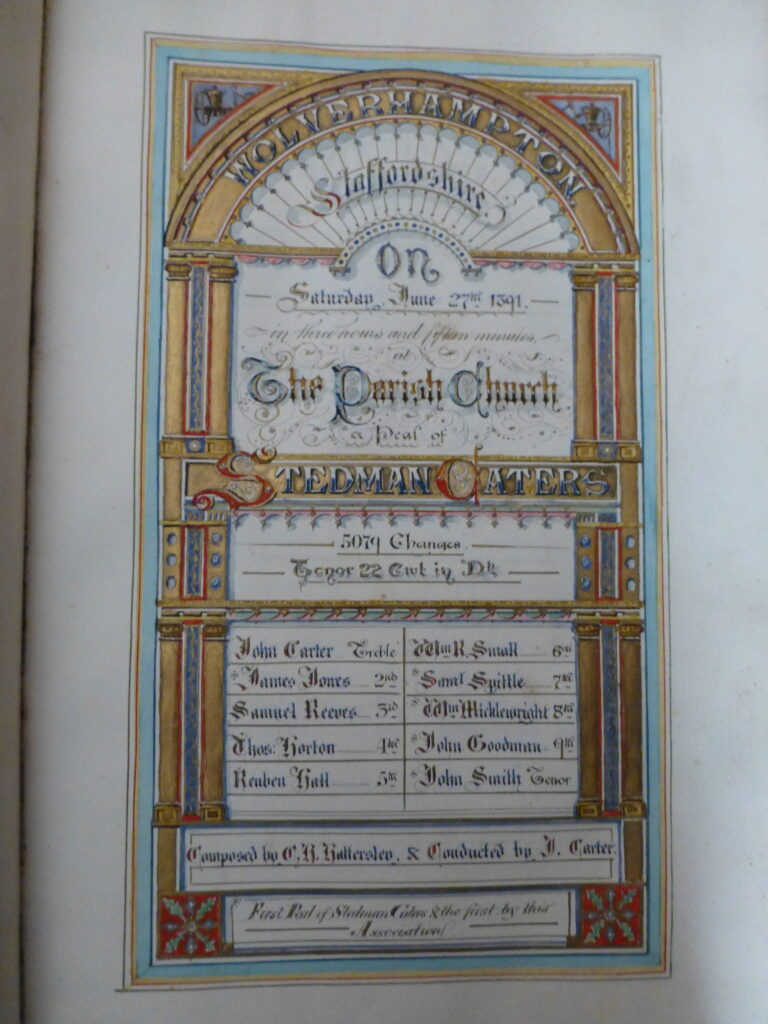 WOLVERHAMPTON
Staffordshire.
On
Saturday, June 27th 1891.
in three hours and fifteen minutes,
at
The Parish Church
a Peal of
STEDMAN CATERS
5079 Changes.
Tenor 22 Cwt in Db
John Carter Treble
*James Jones 2nd
Samuel Reeves 3rd
Thos: Horton 4th
Reuben Hall 5th
Wm R. Small 6th
*Saml Spittle 7th
*Wm Micklewright 8th
*John Goodman 9th
*John Smith Tenor
Composed by C. H. Hattersley, & Conducted by J. Carter.
* First Peal of Stedman Caters & the first by this
Association